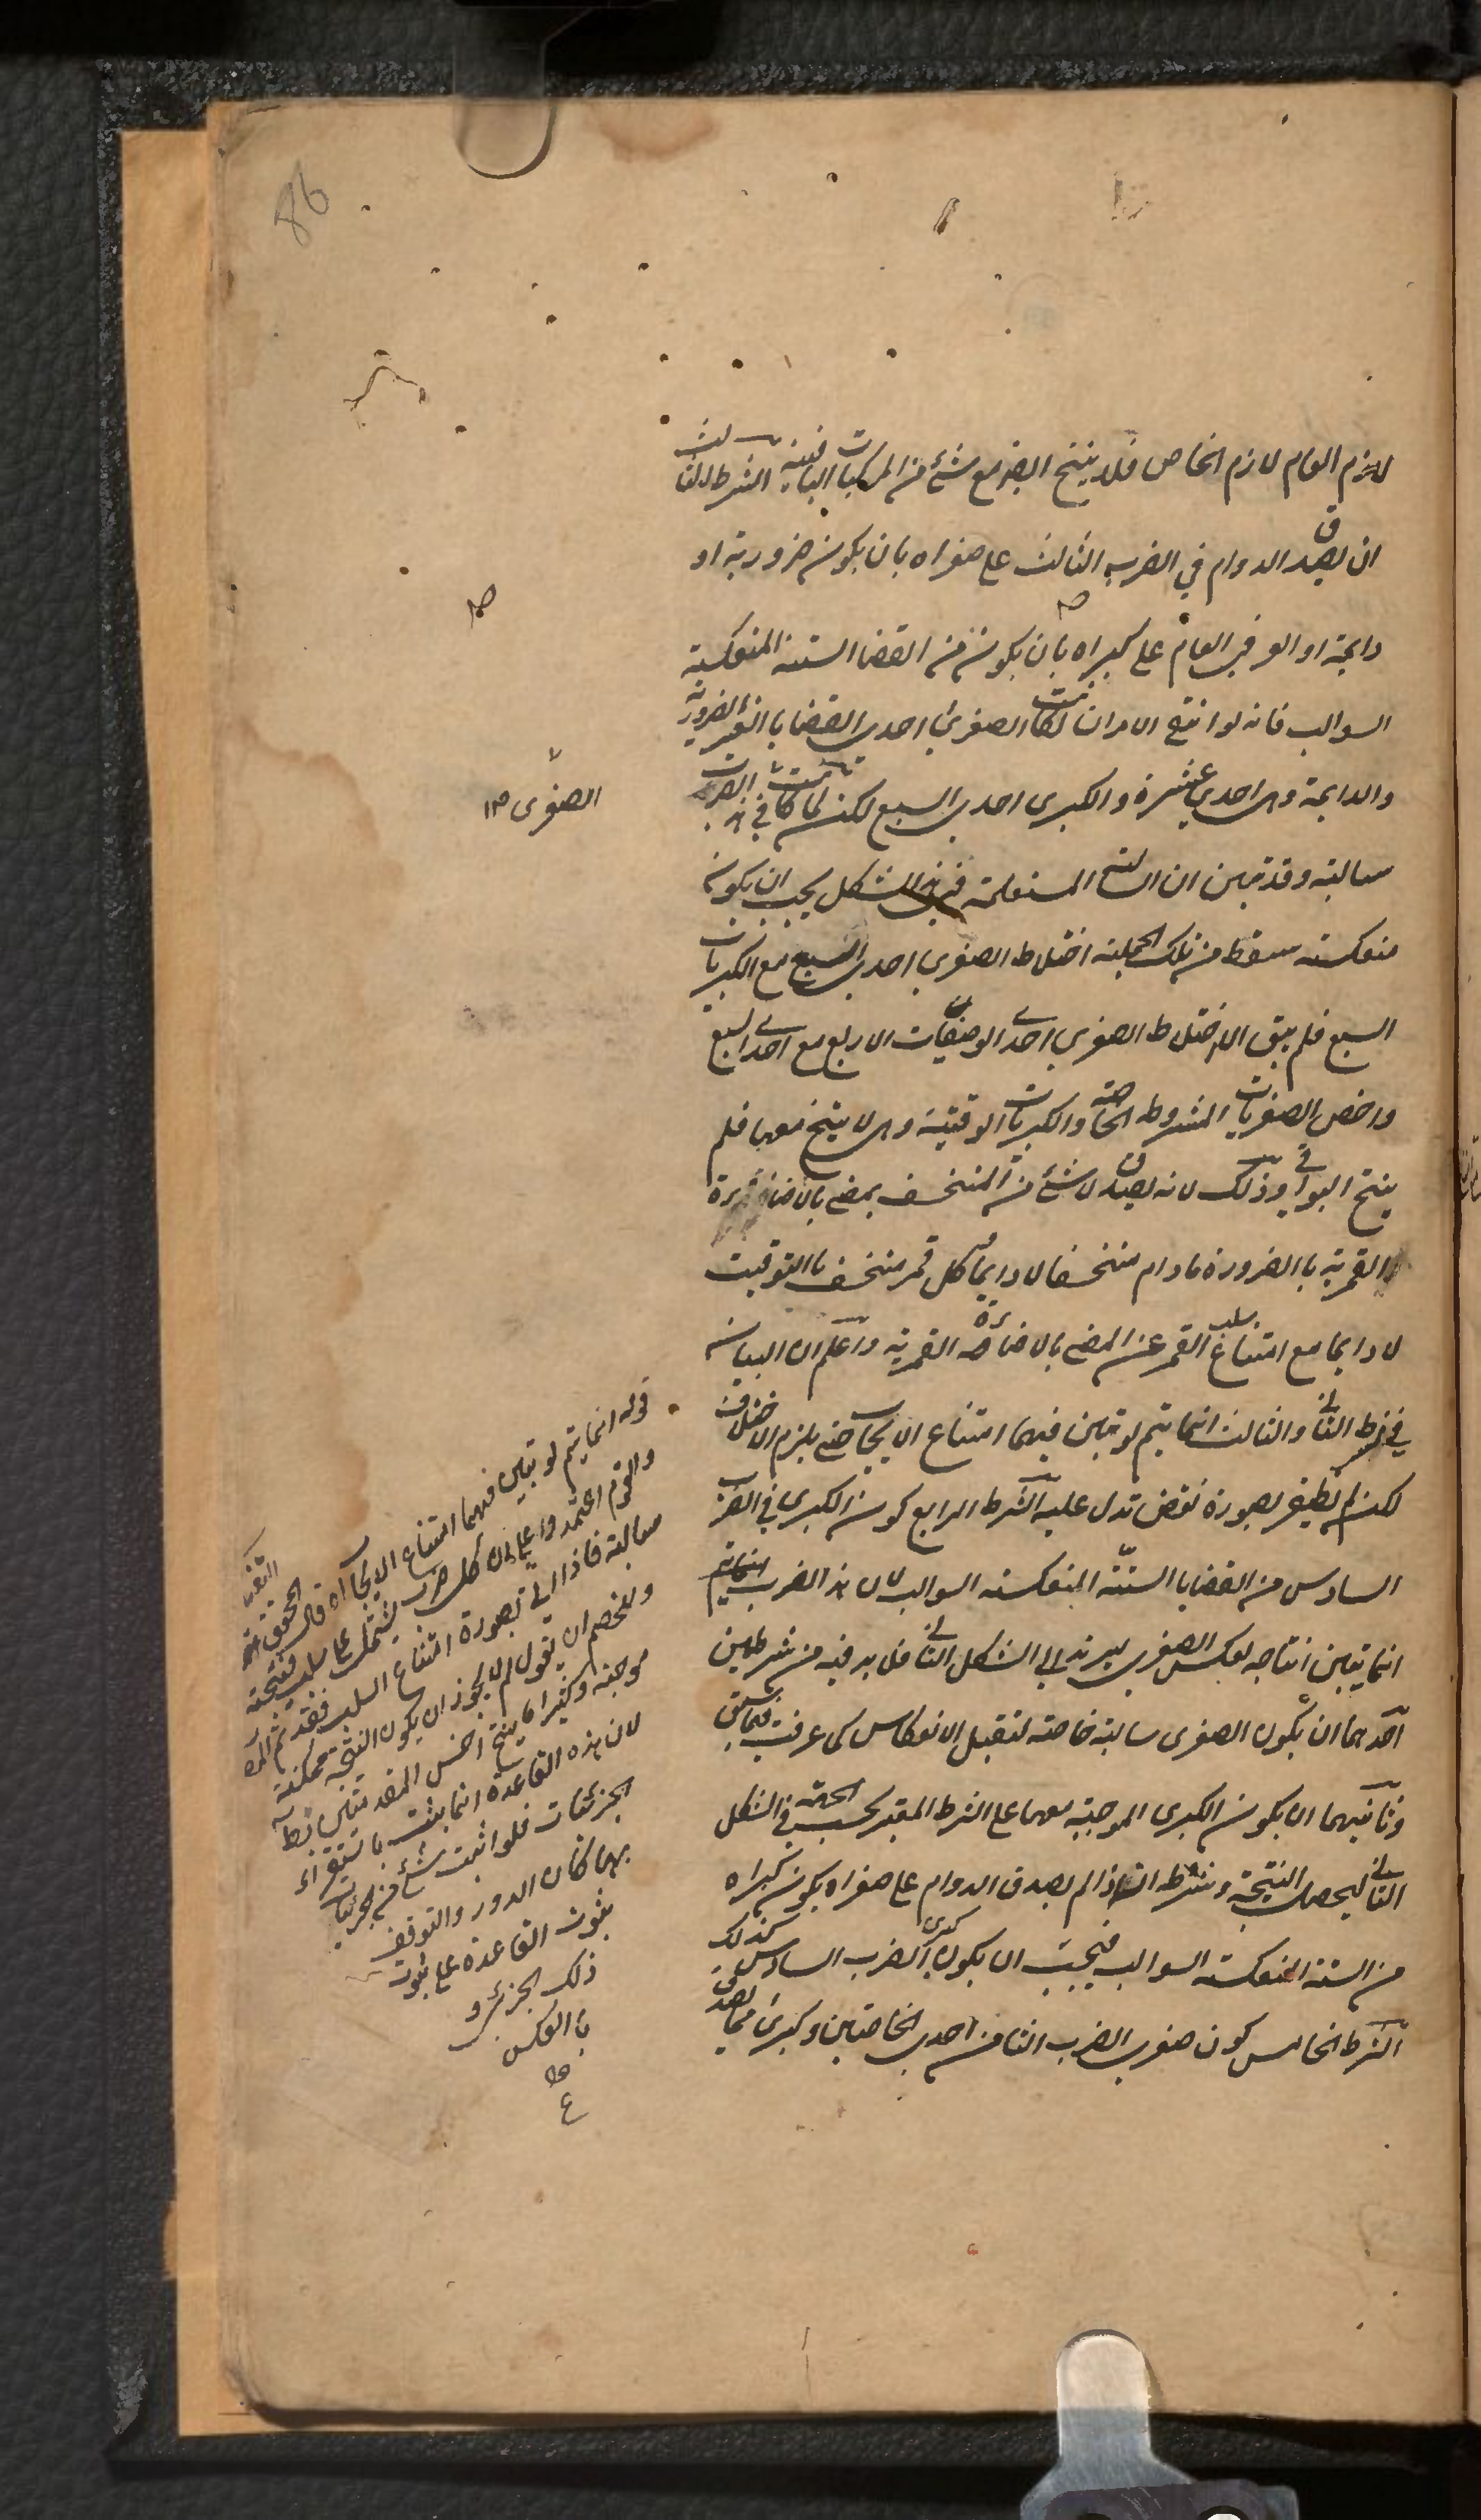 86
لازم العام لازم الخاص فلا ينتج البتة مع شئ من المركبات الباقية الشرط الثالث
ان يصدق الدوام في الضرب الثالث على صغراه بان يكون ضرورية او
دايمة او العرفي العام على كبراه بان يكون من القضايا الستة المنعكسة
السوالب فانه لو انتفى الامران لكانت الصغرى احدى القضايا الغير الضرورية
والدايمة وهي احدى عشرة والكبرى احدى السبع لكن لما كانت في هذا الضرب
سالبة وقد تبين ان السالبة المستعملة في هذا الشكل يجب ان يكون
منعكسة سقط من تلك الجملة اختلاط الصغرى احدى السبع مع الكبريات
السبع فلم يبق الا اختلاط الصغرى احدى الوصفيات الاربع مع احدى السبع
واخص الصغريات المشروطة الخاصة والكبريات الوقتية وهي لا ينتج معها فلم
ينتج البواقي وذلك لانه يصدق لا شئ من المنخسف بمضئ بالاضاءة
القمرية باالضرورة مادام منخسفا لا دايما وكل قمر منخسف باالتوقيت
لا دايما مع امتناع سلب القمر عن المضئ بالاضاءة القمرية واعلم ان البيان
في شرط الثاني والثالث انما يتم لو تبين فيهما امتناع الايجاب حتى يلزم الاختلاف
لكن لم نظفر بصورة نقض تدل عليه الشرط الرابع كون الكبرى في الضرب
السادس من القضايا الستة المنعكسة السوالب لان هذا الضرب
انما تبين انتاجه بعكس الصغرى ليرتد الى الشكل الثاني فلا بد فيه من شرطين
احدهما ان يكون الصغرى سالبة خاصة لتقبل الانعكاس كما عرفت فيما سبق
وثانيهما ان يكون الكبرى الموجبة معها على الشرط المعتبر بحسب الجهة في الشكل
الثاني ليحصل النتيجة وشرطه انه اذا لم يصدق الدوام على صغراه يكون كبراه
من الستة المنعكسة السوالب فيجب ان يكون كبرى الضرب السادس كذلك
الشرط الخامس كون صغرى الضرب الثامن احدى الخاصتين وكبراه مما يصدق
الصغرى
قوله انما يتم لو تبين فيهما امتناع الايجاب اه قال
والقوم اعتمدوا على ان كل ضرب يشتمل على سلب فنتيجته
سالبة فاذا بصورة امتناع السلب فقد تم
وللخصم ان يقول لم لا يجوز ان يكون النتيجة ممكنة
موجبة وكثيرا ما ينتج اخس المقدمتين
لان هذه القاعدة انما يثبت باستقراء
الجزئيات فلو اثبت شئ من الجزئيات
بها لكان الدور والتوقف
ثبوت القاعدة على ثبوت
ذلك الجزئي و
باالعكس